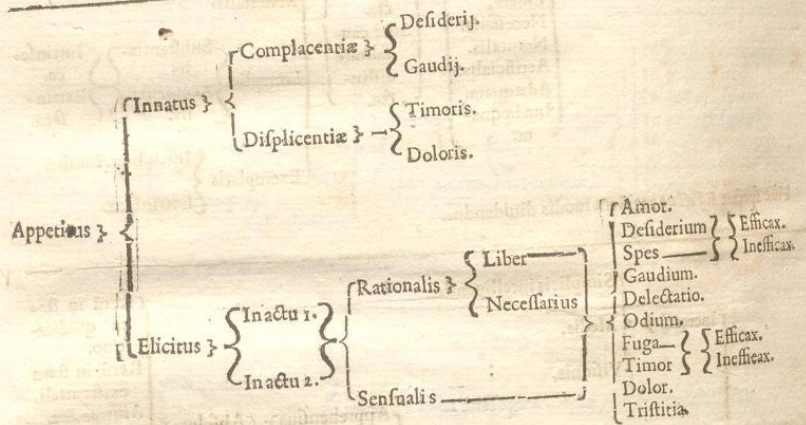 Appetitus
Innatus
Complacentiæ
Desiderij.
Gaudij.
Displicentiæ
Timoris.
Doloris.
Elicitus
In actu 1.
In actu 2.
Rationalis
Liber
Necessarius
Sensualis
Amor.
Desiderium
Spes
Efficax.
Inefficax.
Gaudium.
Delectatio.
Odium.
Fuga
Timor
Efficax.
Inefficax.
Dolor.
Tristitia.